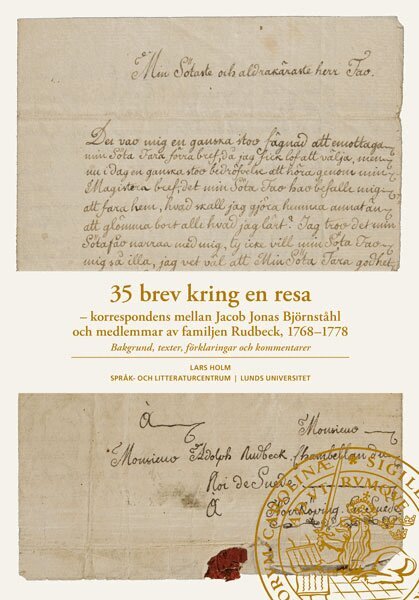 Min Sötaste och aldrakäraste herr Far.
Det var mig en ganska stor fägnad att emottaga
min Söta Fars förra bref, då jag fick lof att välja, men
nu i dag en ganska stor bedröfvelse att höra genom min
Magisters bref, det min Söta Far har befalle mig
att fara hem, hvad skall jag gjöra hemma annat än
att glömma bort alle hvad jag lärt? Jag tror det min
Söta Far narras med mig, ty icke vill min Söta Far
mig så illa, jag vet väl att Min Söta Fars godhet
35 brev kring en resa
– korrespondens mellan Jacob Jonas Björnståhl
och medlemmar av familjen Rudbeck, 1768–1778
Bakgrund, texter, förklaringar och kommentarer
LARS HOLM
SPRÅK- OCH LITTERATURCENTRUM | LUNDS UNIVERSITET
À Monsieur
Monsieur Adolph Rudbeck, Chambellan du
Roi de Suede
À Norrkoping en Suede